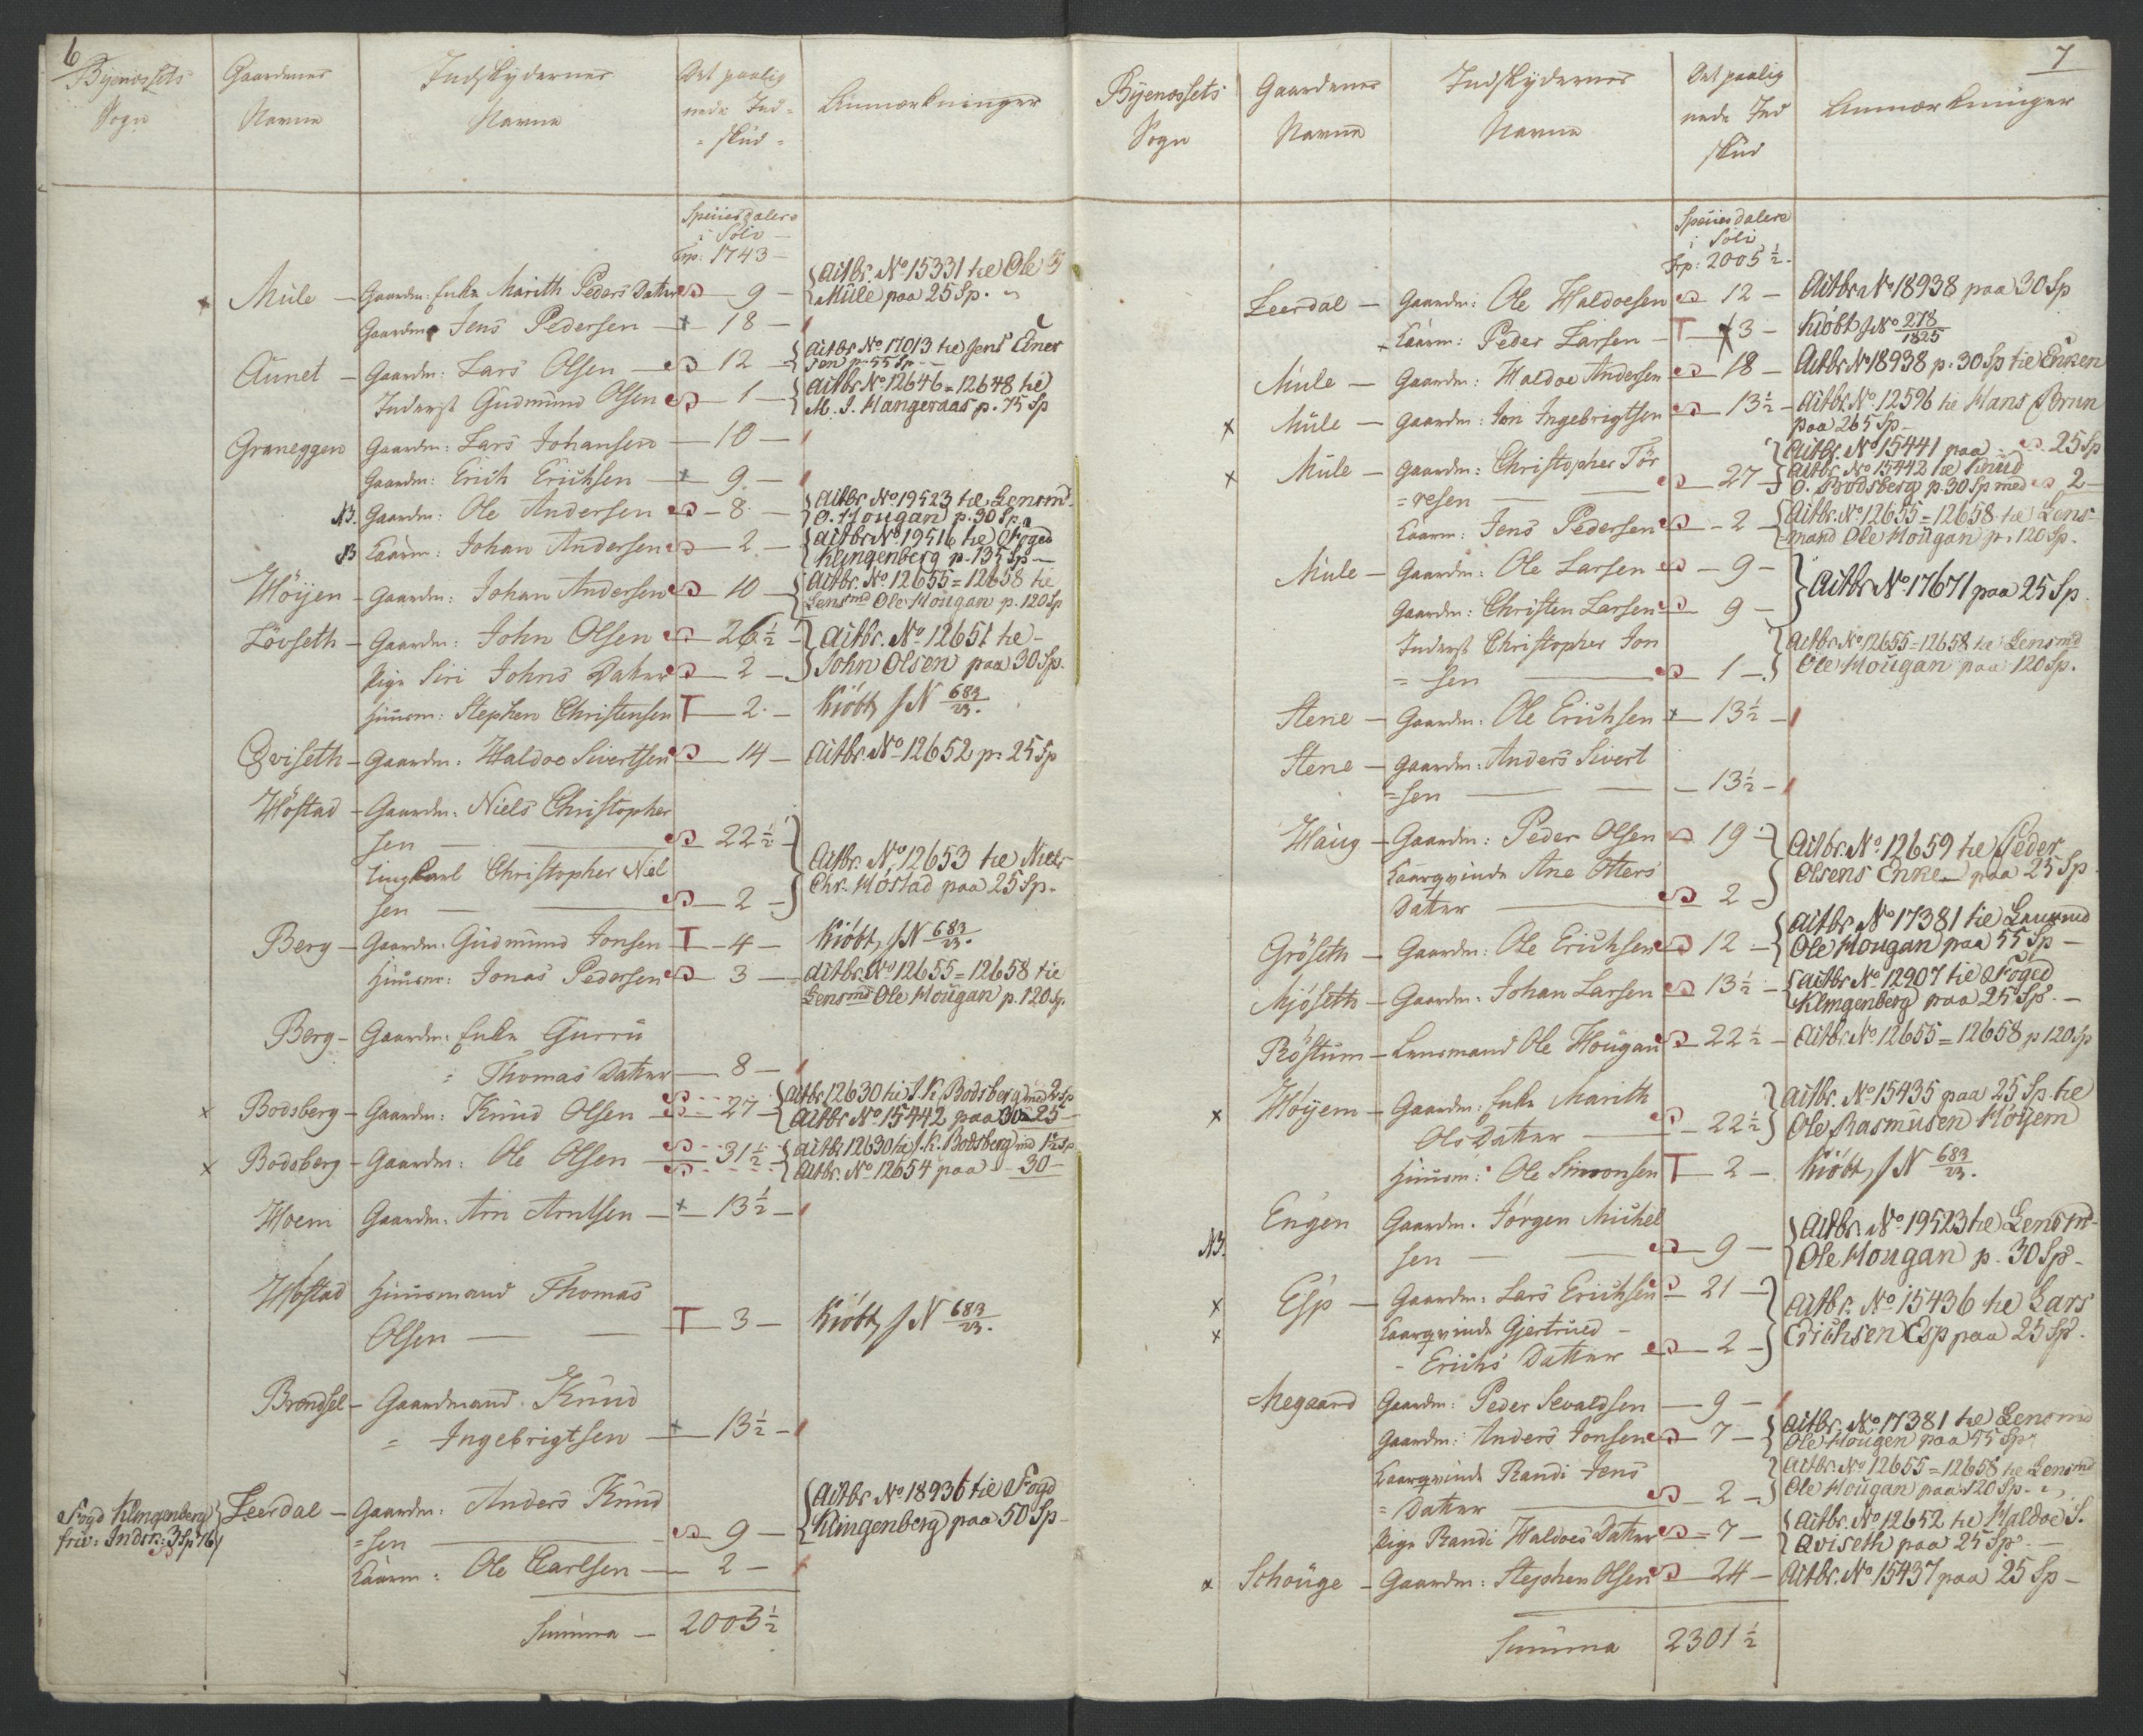 6
Byenossets Sogn
Gaardenes Navne
Indskydernes Navne
Det paalignede Ind=skud
Anmærkninger
Speciesdalere
i Sölv
Trp: 1743 —
Mule — Gaardm: Enke Marith Peders Datter — 9 — Actbr. No 15331 til Ole
Mule paa 25 Sp.
Gaardm: Jens Pedersen — 18 —
Aunet — Gaardm: Lars Olsen — 12 — Actbr No 17013 til Jens Einer
sen p. 55 Sp
Inderst Gudmund Olsen — 1 — Actbr No 12646 = 12648 til
M. I. Hangeraas p. 75 Sp
Graneggen Gaardm: Lars Johansen — 10 —
Gaardm: Erich Erichsen — 9 —
NB. Gaardm: Ole Andersen — 8 — Actbr. No 19523 til Lensmd.
O. Hougan p. 30 Sp
NB Kaarm: Johan Andersen — 2 — Actbr No 19516 til Foged
Klingenberg p. 135 Sp —
Höyen — Gaardm: Johan Andersen — 10 — Actbr. No 12655 = 12658 til
Lensmd Ole Hougan p. 120 Sp
Lövseth — Gaardm: John Olsen — 26 ½ — Actbr. No 12651 til
Pige Siri Johns Datter — 2 — John Olsen paa 30 Sp.
Huusm: Stephen Christensen T — 2 — Kiöbt J N 683/23.
Qviseth — Gaardm: Haldoe Sivertsen — 14 — Actbr. No 12652 p. 25 Sp
Höstad — Gaardm: Niels Christopher
sen — 22 ½ — Actbr. No 12653 til Niels
Ungkarl Christopher Niel Chr. Höstad paa 25 Sp.
sen — 2 —
Berg — Gaardm: Gudmund Jonsen T — 4 — Kiöbt J N 683/23.
Huusm: Jonas Pedersen — 3 — Actbr. No 12655 = 12658 til
Lensmd Ole Hougan p. 120 Sp.
Berg — Gaardm: Enke Gurru
= Thomas Datter — 8 —
x Bodsberg — Gaardm: Knud Olsen — 27 — Actbr 12630 til J. K. Bodsberg med 2 Sp
Actbr No 15442 paa 30 25 —
x Bodsberg — Gaardm: Ole Olsen — 31 ½ — Actbr 12630 til J. K. Bodsberg md 1½ Sp
Actbr. No 12654 paa — 30 —
Hoem Gaardm: Arn Arntsen — 13 ½ —
Höstad Huusmand Thomas
Olsen — T — 3 — Kiöbt J N 683/23.
Brendsel — Gaardmand Knud
= Ingebrigtsen — 13 ½ —
Fogd Klingenberg
friv: Indsk: 3 Sp 76
Leerdal — Gaardm: Anders Knud Actbr No 18936 til Fogd
=sen — 9 — Klingenberg paa 50 Sp —
Kaarm: Ole Carlsen — 2 —
Summa — 2003 ½
7
Byenossets Sogn
Gaardenes Navne
Indskydernes Navne
Det paalignede Ind skud
Anmærkninger
Speciesdalere
i Sölv
Trp: 2005 ½ —
Leerdal — Gaardm: Ole Haldoesen — 12 — Actbr No 18938 paa 30 Sp
Kaarm: Peder Larsen — T — 3 — Kiöbt J No 278/1825
Mule — Gaardm: Haldoe Andersen — 18 — Actbr No 18938 p. 30 Sp til Enken
x Mule — Gaardm: Jon Ingebrigtsen — 13 ½ — Actbr. No 12596 til Hans Brun
paa 265 Sp —
x Mule — Gaardm: Christopher Tör Actbr. No 15441 paa — 25 Sp
=resen — 27 — Actbr. No 15442 til Knud
O. Bodsberg p. 30 Sp med 2 —
Kaarm: Jens Pedersen — 2 — Actbr. No 12655 = 12658 til Lens-
mand Ole Hougan p. 120 Sp.
Mule — Gaardm: Ole Larsen — 9 —
Gaardm: Christen Larsen — 9 — Actbr No 17671 paa 25 Sp.
Inderst Christopher Jon Actbr No 12655 = 12658 til Lensmd
= sen — 1 — Ole Hougan paa 120 Sp.
Stene — Gaardm: Ole Erichsen — 13 ½ —
Stene — Gaardm: Anders Sivert
=sen — 13 ½ —
Haug — Gaardm: Peder Olsen — 19 — Actbr. No 12659 til Peder
Kaarqvinde Ane Otters Olsens Enke — paa 25 Sp
Datter — 2 —
Gröseth — Gaardm: Ole Erichsen — 12 — Actbr No 17381 til Lensmd
Ole Hougan paa 55 Sp —
Mjöseth — Gaardm: Johan Larsen — 13 ½ — Actbr No 12907 til Foged
Klingenberg paa 25 Sp. —
Röstum — Lensmand Ole Hougan — 22 ½ — Actbr. No 12655 = 12658 p 120 Sp
x Höyem — Gaardm: Enke Marith Actbr. No 15435 paa 25 Sp. til
Ols Datter — 22 ½ Ole Rasmusen Höyem
Huusm: Ole Simonsen T — 2 — Kiöbt J N 683/23.
Engen Gaardm: Jörgen Michel Actbr. No 19523 til Lensmd-
NB. sen — 9 — Ole Hougan p. 30 Sp —
x Esp — Gaardm: Lars Erichsen — 21 — Actbr. No 15436 til Lars
x Kaarqvinde Gjertrued — Erichsen Esp paa 25 Sp.
- Erichs Datter — 2 —
Megaard Gaardm: Peder Sevaldsen — 9 —
Gaardm: Anders Jonsen — 7 — Actbr. No 17381 til Lensmd
Ole Hougen paa 55 Sp
Kaarqvinde Randi Jens Actbr. No 12655 = 12658 til Lensmd
= Datter — 2 — Ole Hougan paa 120 Sp.
Pige Randi Haldoes Datter = 7 — Actbr. No 12652 til Haldoe S.
Qviseth paa 25 Sp. —
x Schouge — Gaardm: Stephen Olsen — 24 — Actbr. No 15437 paa 25 Sp —
Summa 2301 ½